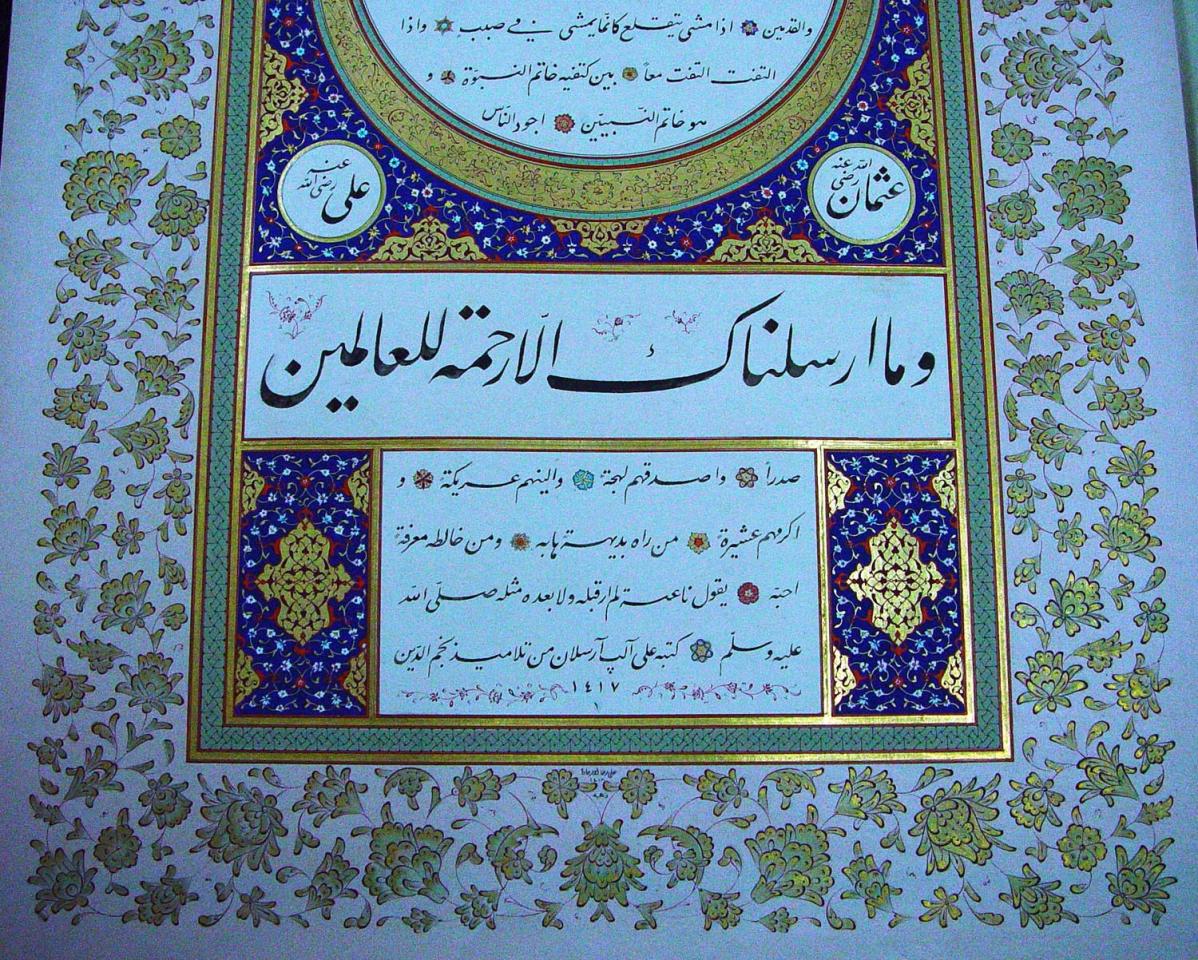 والقدمين اذا مشى يتقلع كانما يمشى فى صبب واذا
التفت التفت معاً بين كتفيه خاتم النبوّة و
هو خاتم النبيّين اجود النّاس
عثمان رضى الله عنه
على رضى الله عنه
وما ارسلناك الّا رحمة للعالمين
صدراً واصدقهم لهجة والينهم عريكة و
اكرمهم عشيرة من راه بديهة هابه ومن خالطه معرفة
احبّه يقول ناعته لم ار قبله ولا بعده مثله صلّى الله
عليه وسلّم كتبه على آلب آرسلان من تلاميذ نجم الدّين
١٤١٧